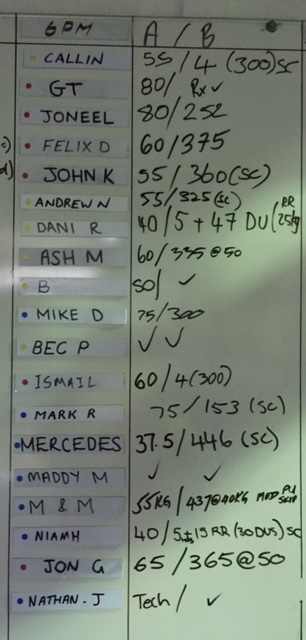 6PM A / B
CALLIN 55 / 4 (300) SC
GT 80/ Rx ✓
JONEEL 80/252
FELIX D 60/375
JOHN K 55/360 (SC)
ANDREW N 55/325 (SC)
DANI R 40/5 + 47 DU (RR 25kg
ASH M 60/335@50
B 50/ ✓
MIKE D 75/300
BEC P ✓ ✓
ISMAIL 60/4(300)
MARK R 75/153 (SC)
MERCEDES 37.5/446 (SC)
MADDY M ✓ ✓
M & M 55KG/437@40KG MOD PU SKIP
NIAMH 40/5+15 RR (30 DUS) SC
JON G 65/365@50
NATHAN.J Tech/ ✓